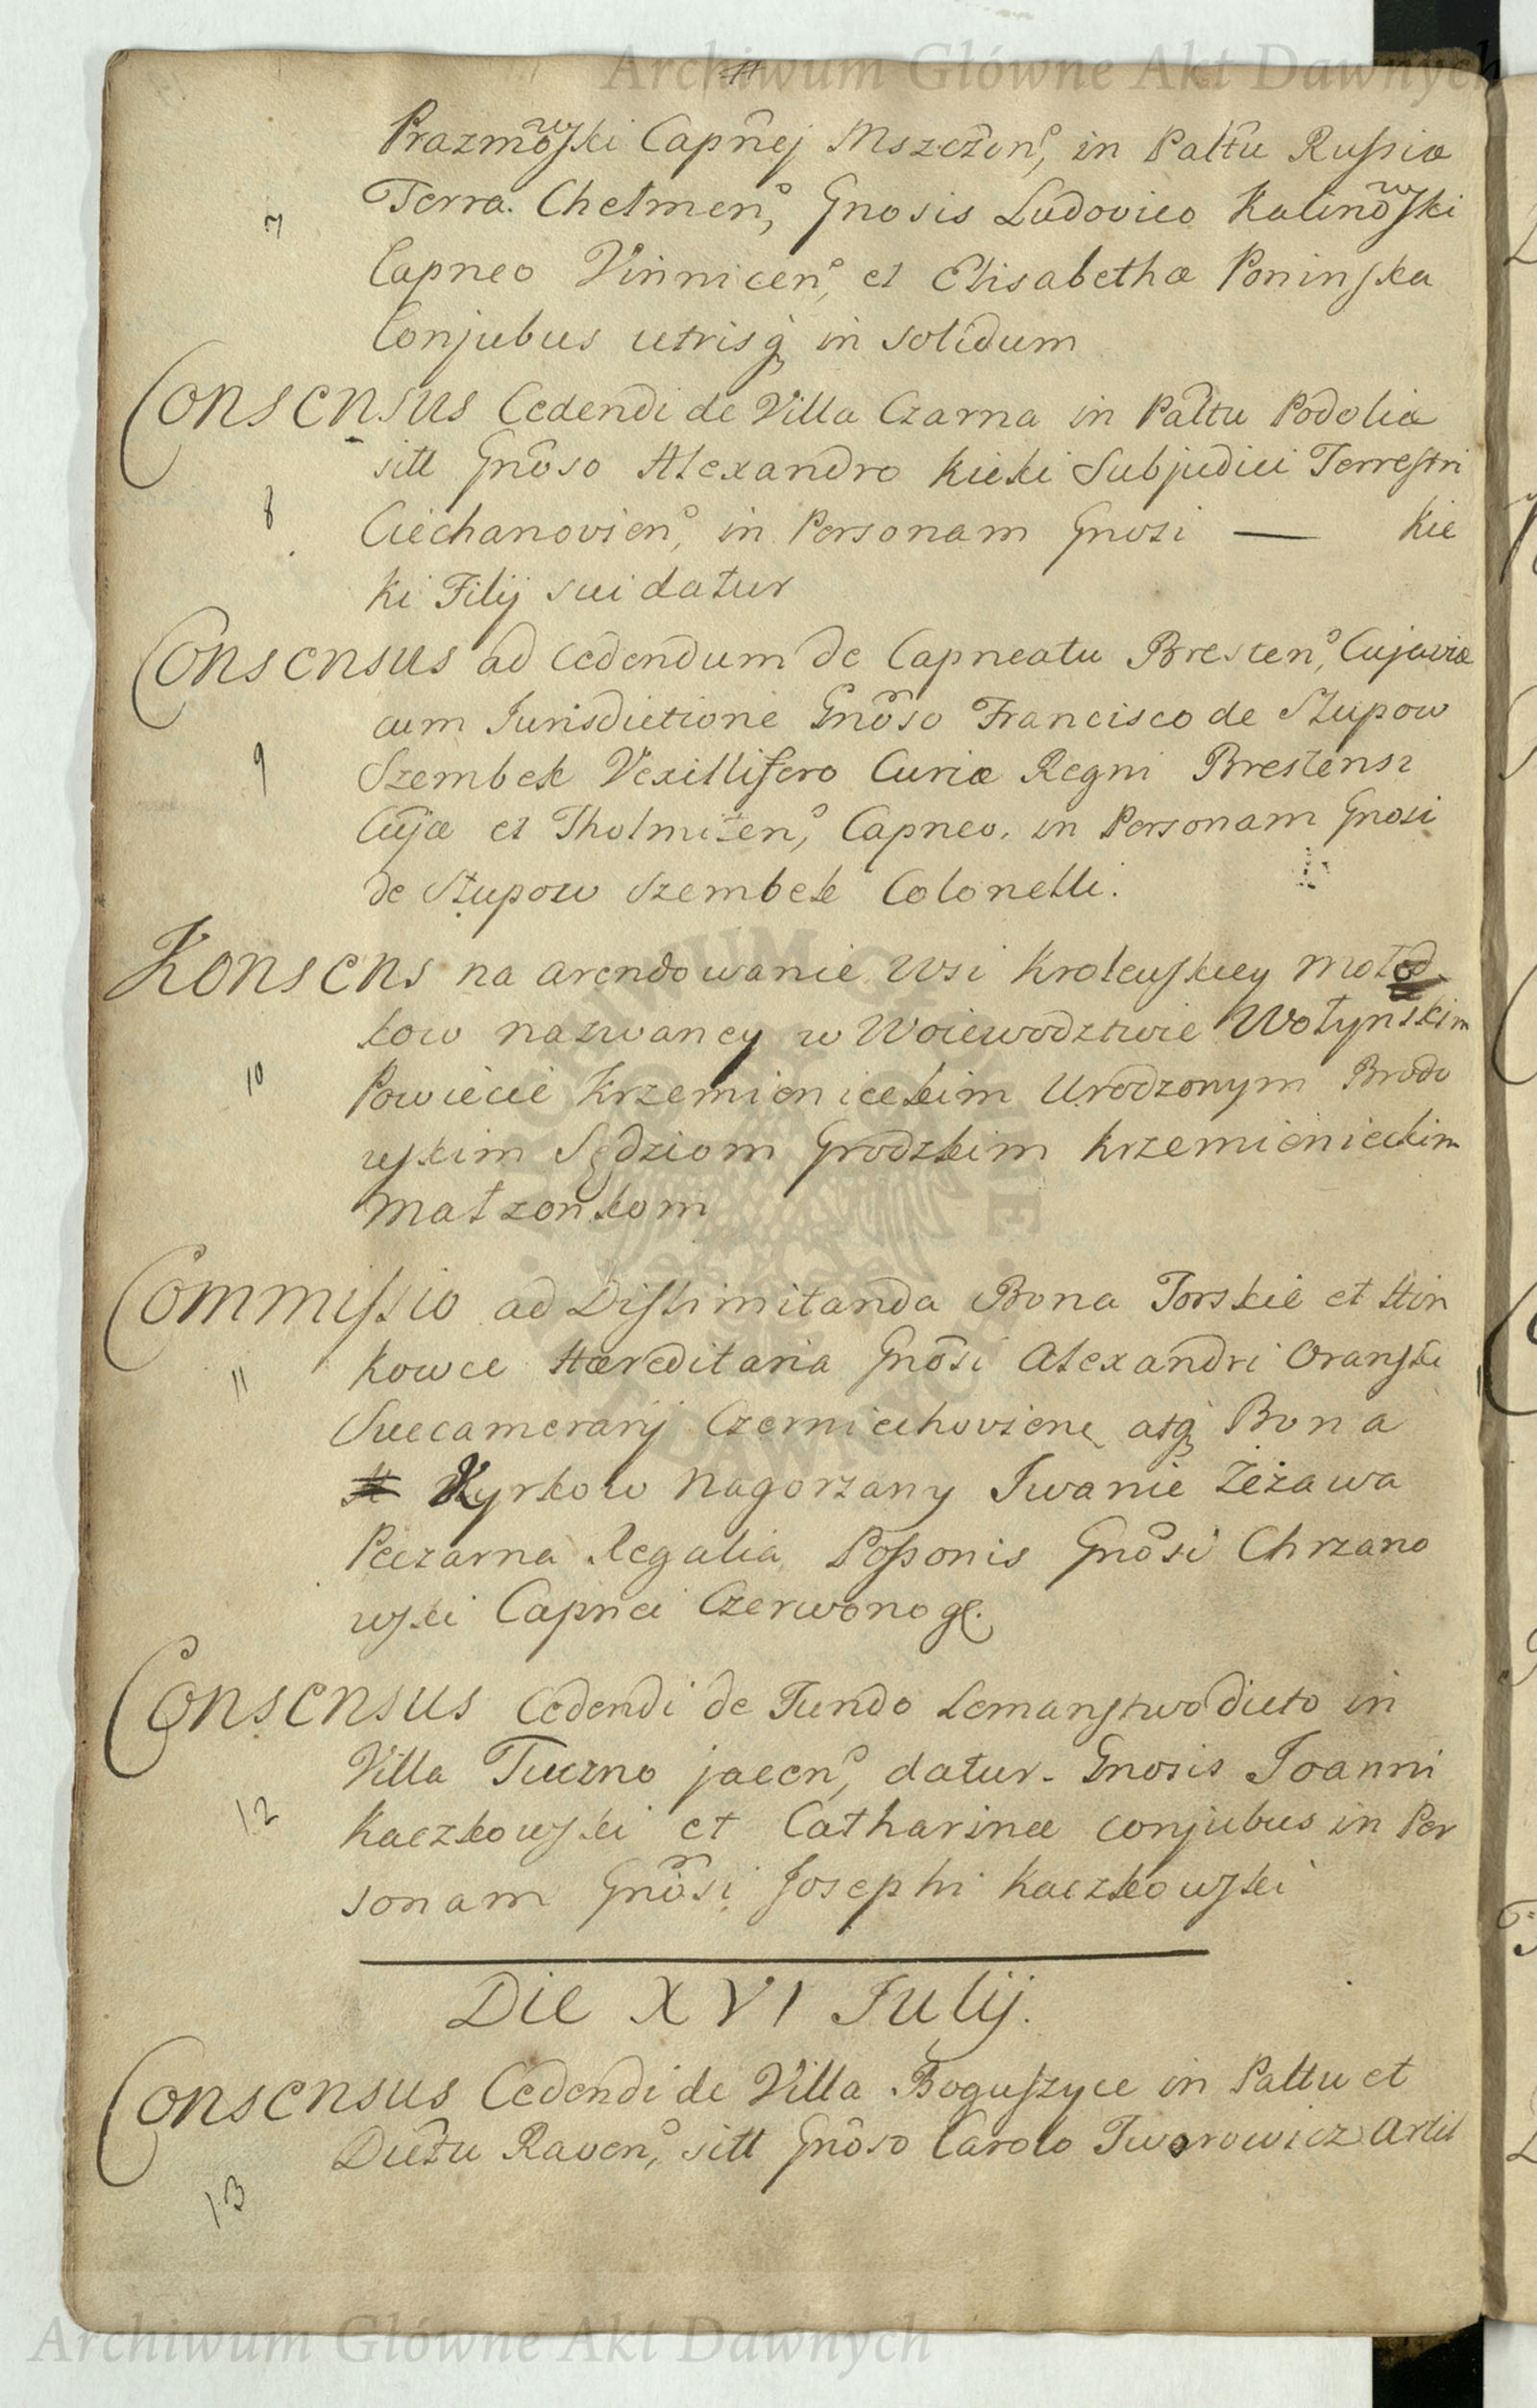 Archiwum Główne Akt Dawnych
Prazmowski Capnej Mszczon, in Paltu Russiæ
7 Terra Chełmen, Gnosis Ludovico Kalinowski
Capneo Vinnicen, et Elisabethæ Poninska
Conjubus utrisq in solidum
Consensus Cedendi de Villa Czarna in Paltu Podoliæ
sitt Gnoso Alexandro Kicki Subjudici Terrestri
8 Ciechanovien, in Personam Gnosi — Kic
ki Filij sui datur
Consensus ad cedendum de Capneatu Bresten, Cujaviæ
cum Jurisdictione Gnoso Francisco de Słupow
9 Szembek Vexillifero Curiæ Regni Brestensi
Cujæ et Tholmicen, Capneo, in Personam Gnosi
de Słupow Szembek Colonelli.
Konsens na arendowanie wsi Krolewskiey Mołod
kow nazwaney w Woiewodztwie Wołynskim
10 Powiecie Krzemienieckim Urodzonym Brodo
wskim Sędziom Grodzkim Krzemienieckim
Małzonkom
Commissio ad Disslimitanda Bona Torskie et Hin
11 kowce Hæreditaria Gnosi Alexandri Oranski
Succamerarij Czerniechoviene atq Bona
Kyrkow Nagorzany Iwanie Zeżawa
Peczarna Regalia Possonis Gnosi Chrzano
wski Capnei Czerwonog.
Consensus Cedendi de Fundo Lemanstwo dicto in
Villa Tuczno jacen, datur. Gnosis Joanni
12 Kaczkowski et Catharinæ conjubus in Per
sonam Gnosi Josephi Kaczkowski
Die XVI Julij.
Consensus Cedendi de Villa Boguszyce in Paltu et
Dictu Raven, sitt Gnoso Carolo Tworowicz Artil
13
Archiwum Główne Akt Dawnych